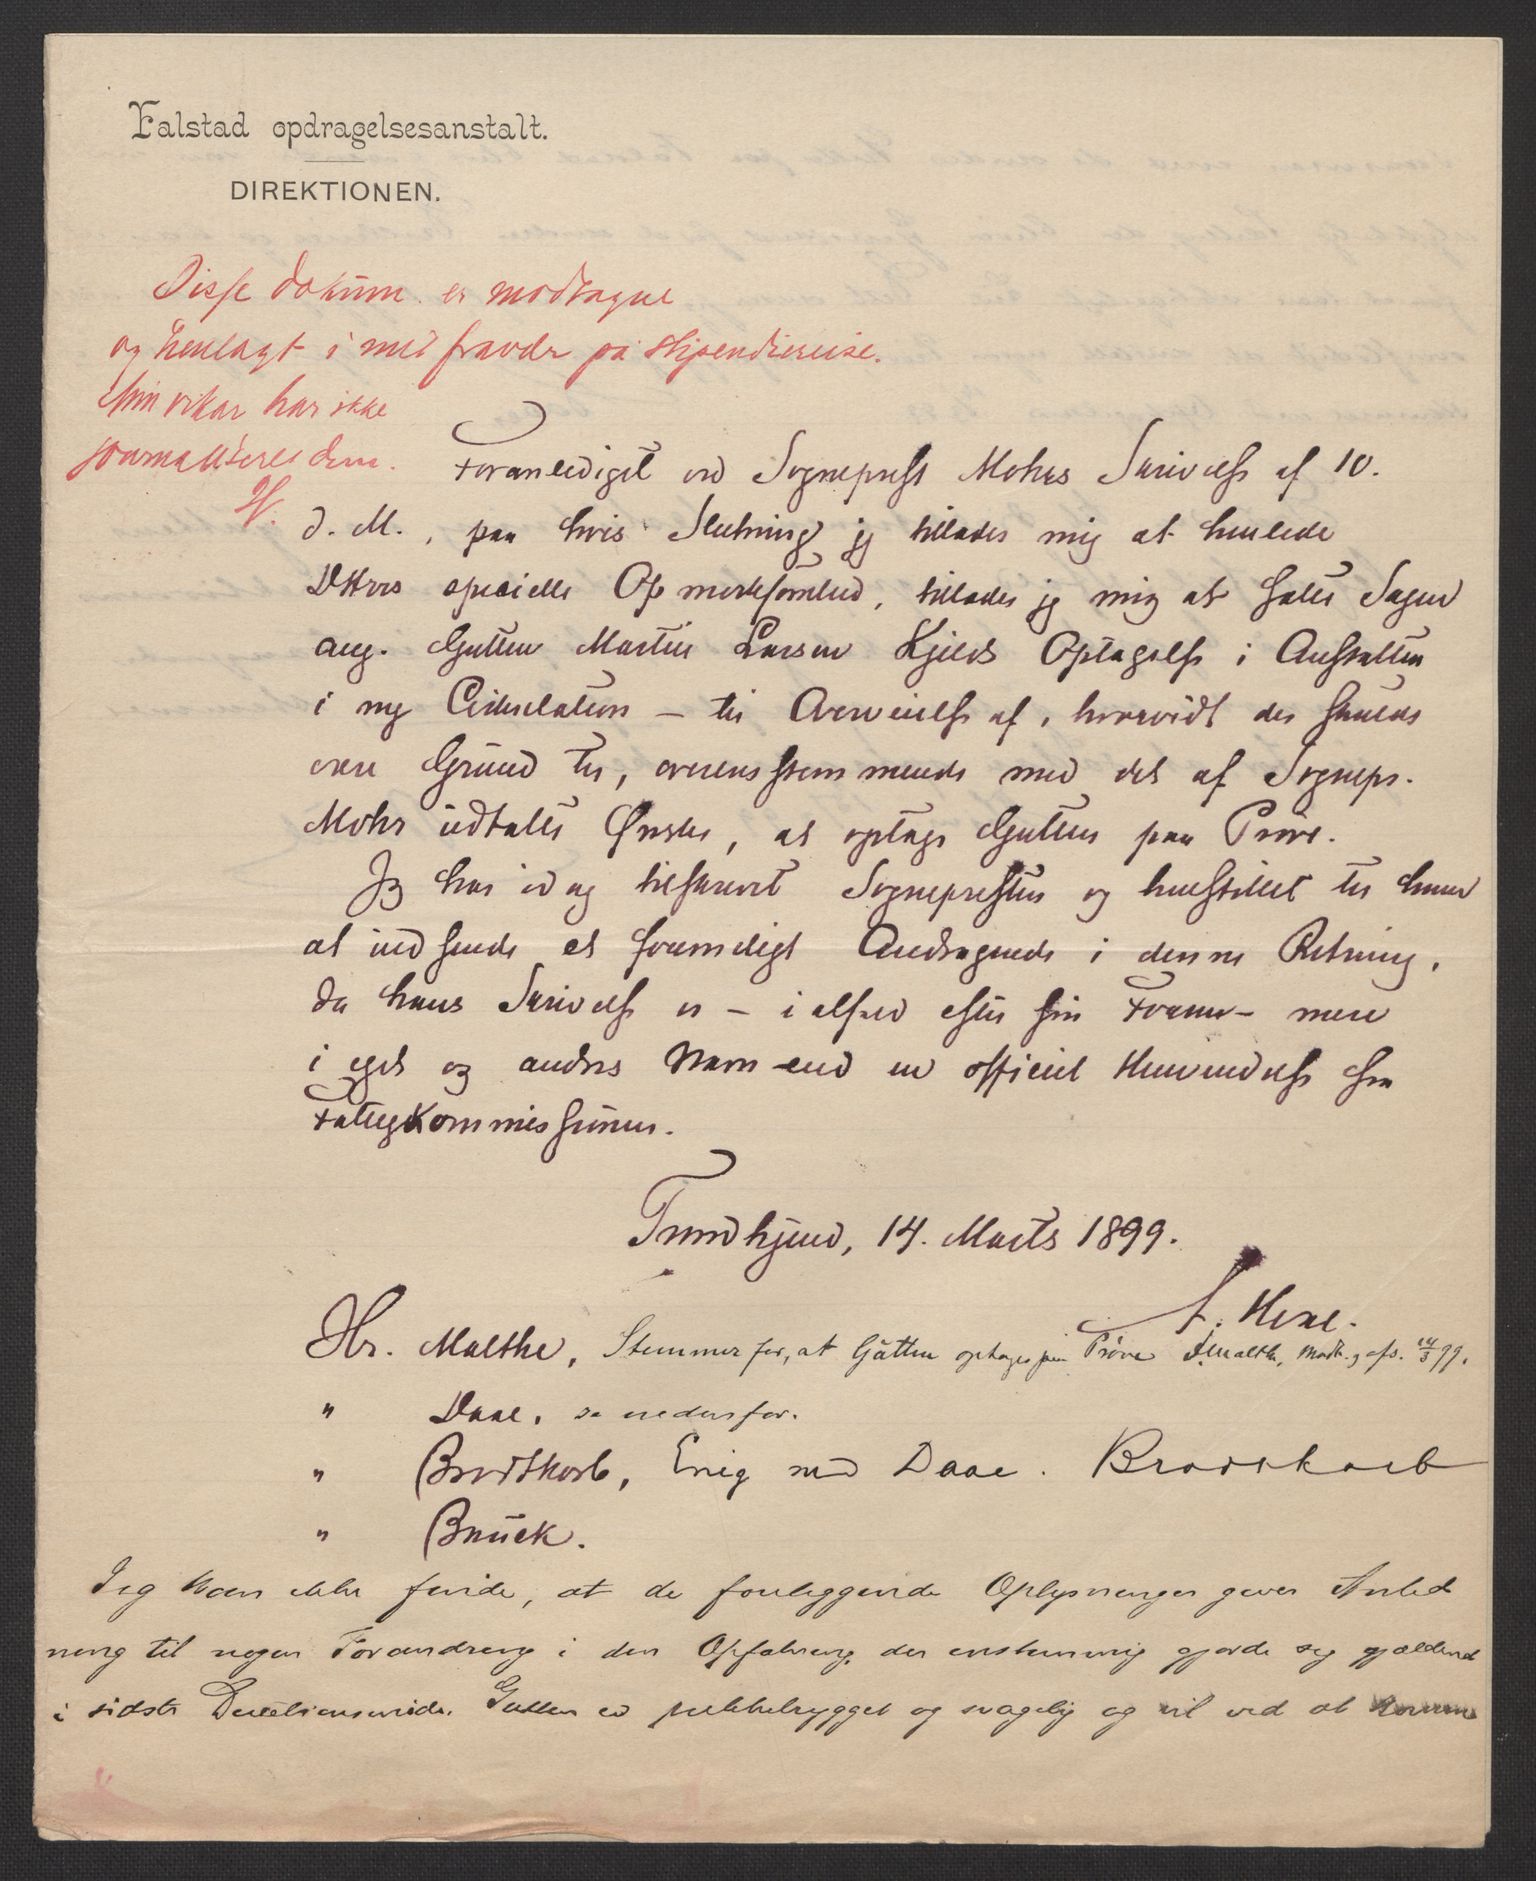 Falstad opdragelsesanstalt.
DIREKTIONEN.
Disse dokum. er modtagne
og henlagt i mit fravær på stipendiereise.
Min vikar har ikke
journaliseret dem.
H.
Foranlediget ved Sogneprest Mohrs Skrivelse af 10.
d. M., paa hvis Slutning jeg tillader mig at henlede
DHrrs specielle Opmerksomhed, tillader jeg mig at sætte Sagen
ang. Gutten Martin Larsen Kjelds Optagelse i Anstalten
i ny Cirkulation – til Overveielse af, hvorvidt der skulde
være Grund til, overensstemmende med det af Sognepr.
Mohr udtalte Ønske, at optage Gutten paa Prøve.
Jeg har idag tilskrevet Sognepresten og henstillet til ham
at indsende et formeligt Andragende i denne Retning,
da hans Skrivelse er – ialfald efter sin Form – mere
i eget og andres Navn end en officiel Henvendelse fra
Fattigkommissionen.
Trondhjem, 14. Marts 1899.
Hr. Malthe, Stemmer for, at Gutten optages paa Prøve Malthe, Modt. og afs. 14/3 99.
" Daae, se nedenfor.
" Brodtkorb, Enig med Daae. Brodtkorb
" Bruck.
Jeg kan ikke finde, at de foreliggende Oplysninger giver Anled
ning til nogen Forandring i den Opfatning, der enstemmig gjorde sig gjældende
i sidste Direktionsmøde. Gutten er pukkelrygget og svagelig og vil ved at komme